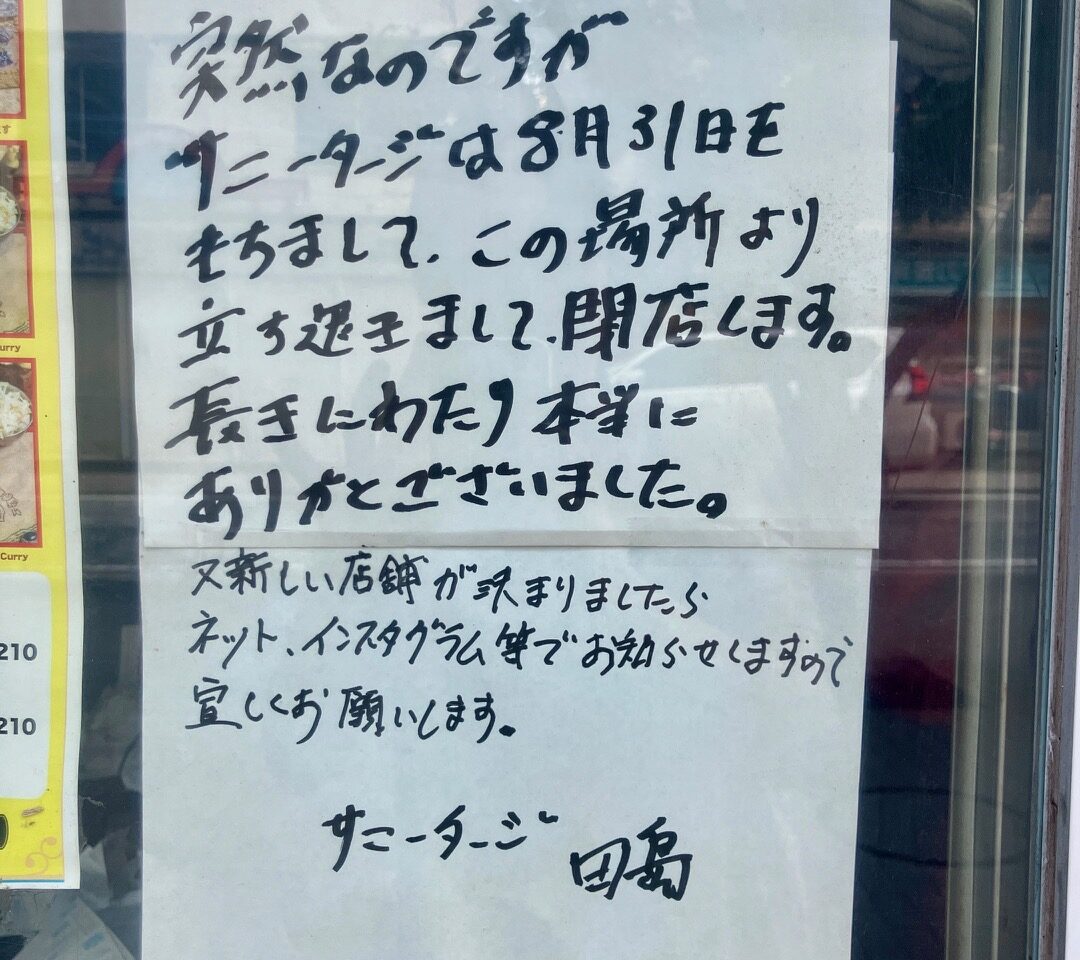 突然なのですが
サニータージは8月31日を
もちまして、この場所より
立ち退きまして、閉店します。
長きにわたり本当に
ありがとございました。
又新しい店舗が決まりましたら
ネット、インスタグラム等でお知らせしますので
宜しくお願いします。
サニータージ 田島
urry
Curry
210
210